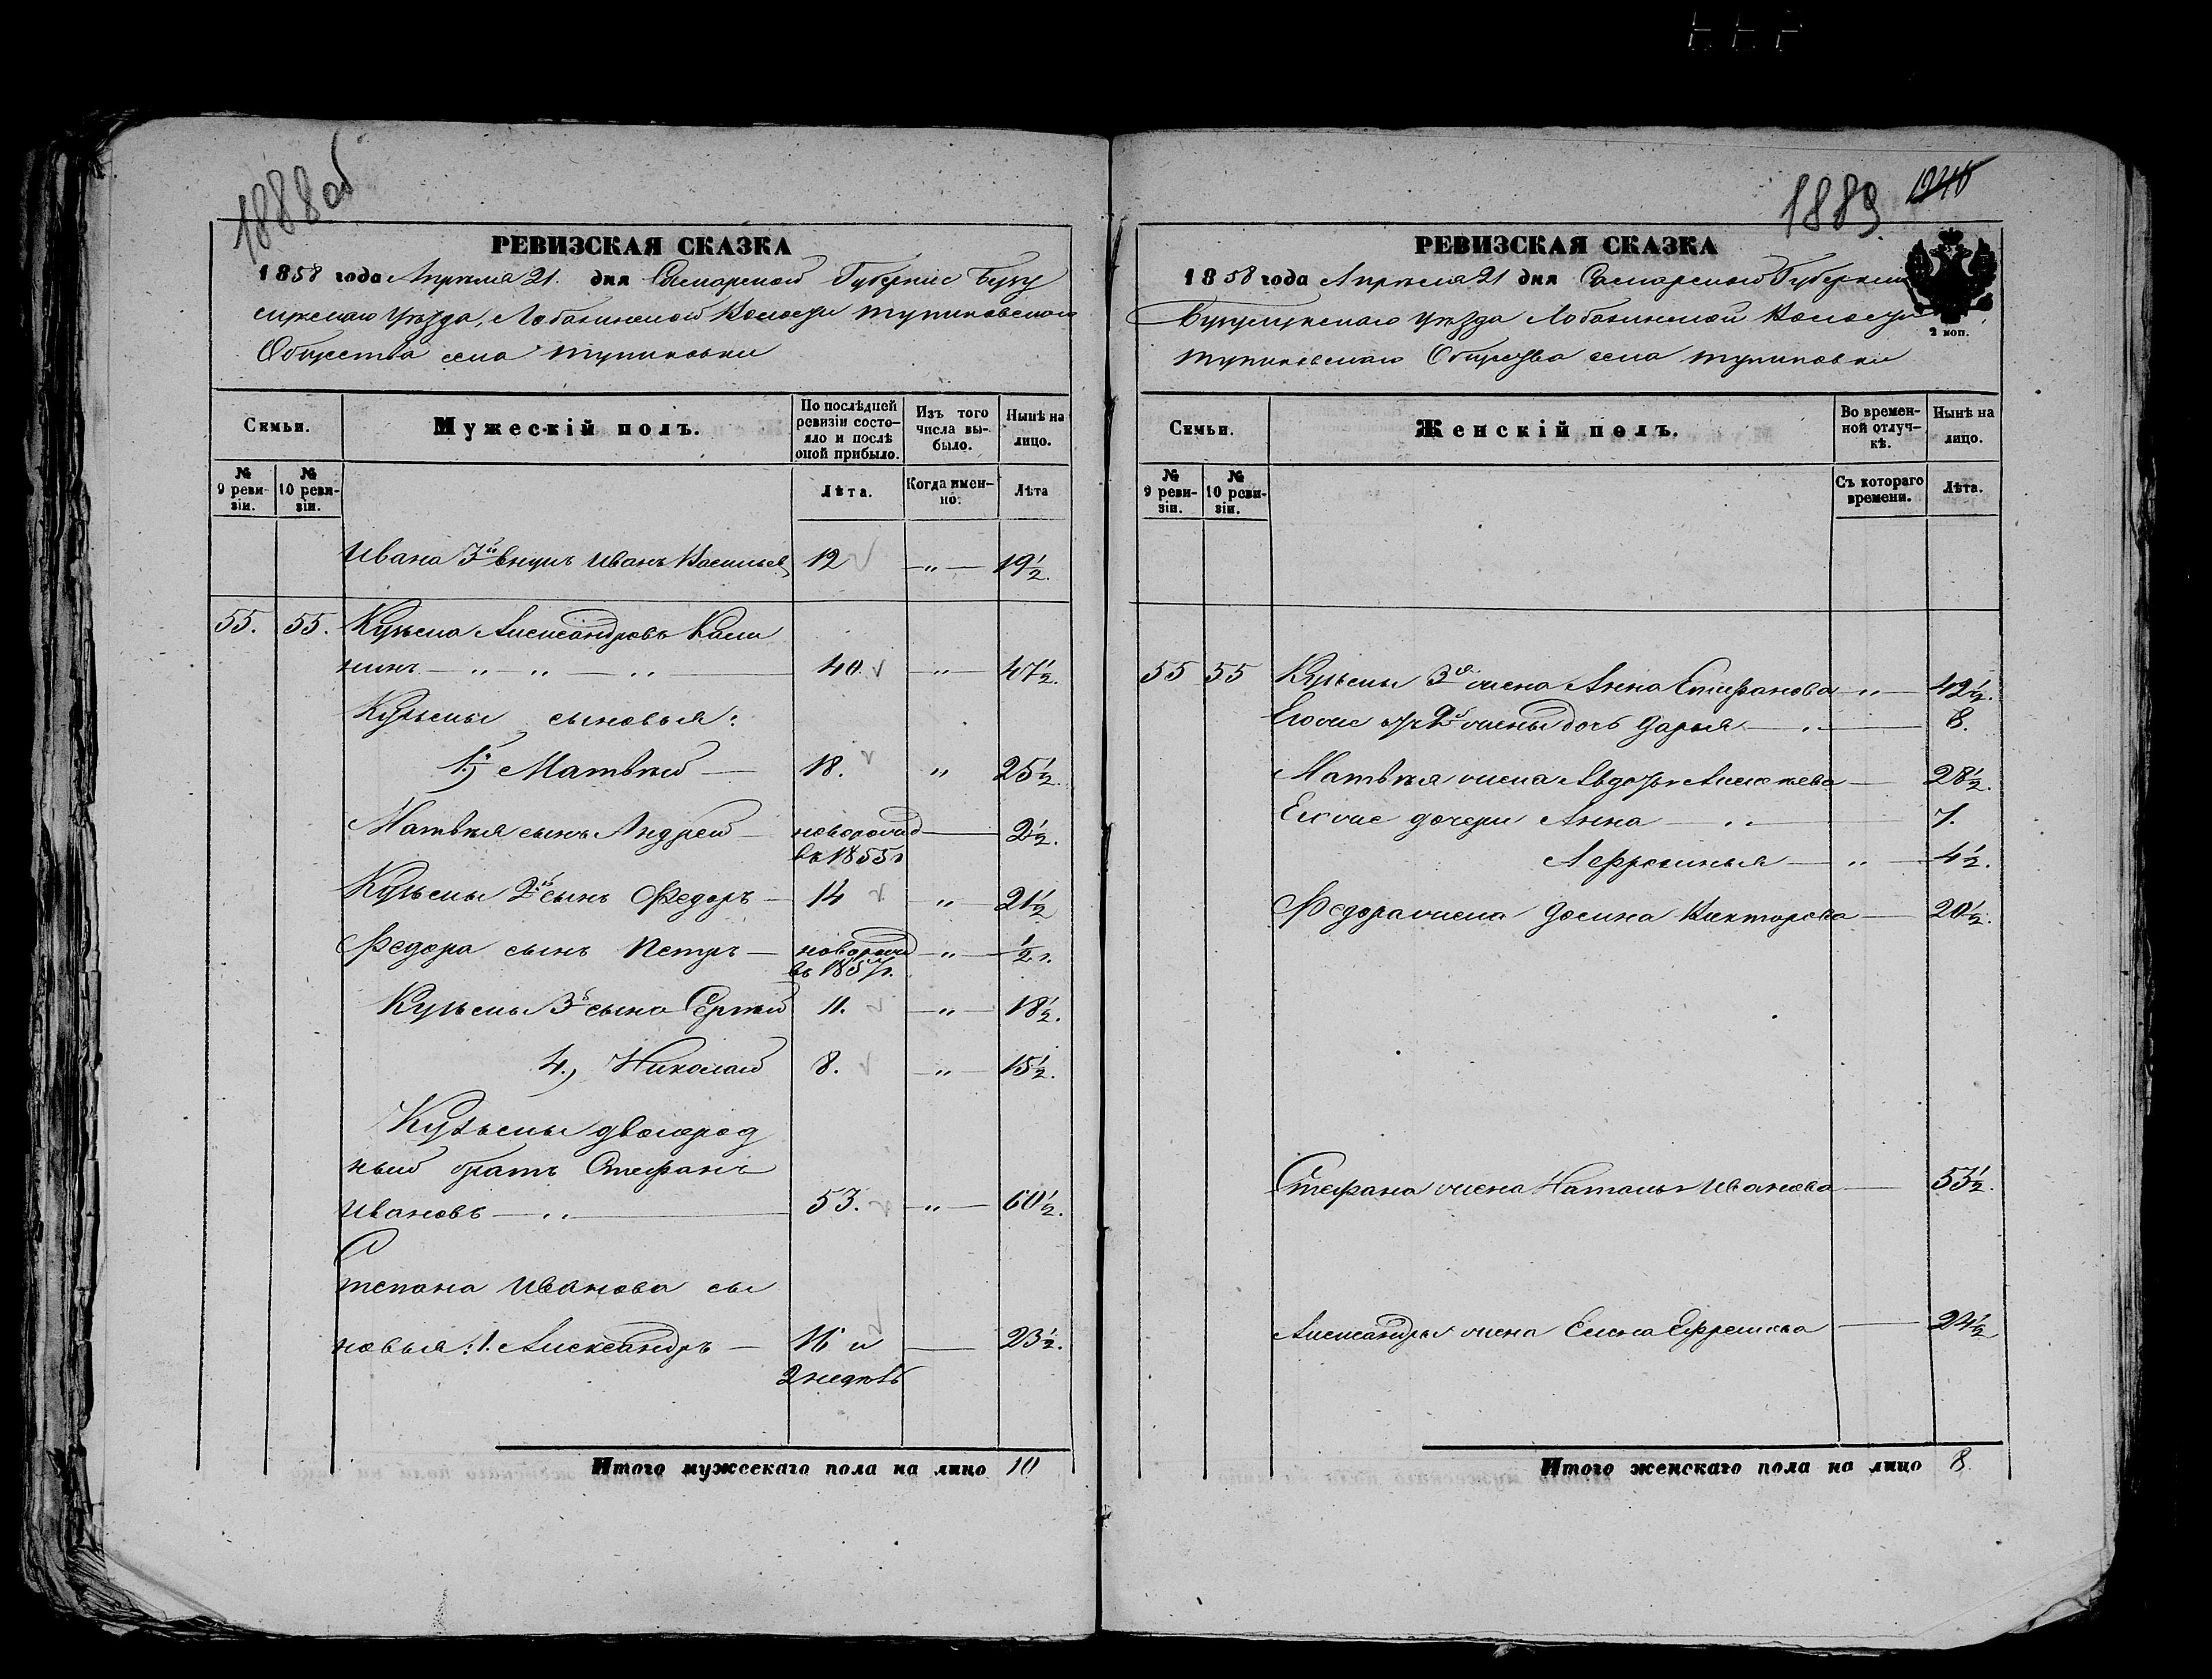 1888 об
РЕВИЗСКАЯ СКАЗКА
1858 года Апреля 21. дня Самарской Губернiи Бугу
служскаго Уѣзда, Лобазинской Волости Тупиковскаго
Общества села Тупиковки
Семьи.
Мужескiй полъ.
По послѣдней ревизiи состояло и послѣ оной прибыло.
Изъ того числа выбыло.
Нынѣ на лицо.
№ 9 ревизiи.
№ 10 ревизiи.
Лѣта.
Когда именно.
Лѣта
Ивана 3й внукъ Иванъ Васильев 12 — „ — 19½.
55. 55. Кузьма Александровъ Кали
нинъ — „ — „ — „ — 40. — „ — 47½.
Кузьмы сыновья:
1й, Матвѣй — 18. „ 25½.
Матвѣя сынъ Андрей — новорожд — 2½.
въ 1855г
Кузьмы 2й сынъ Федоръ — 14 — „ — 21½
Федора сынъ Петръ — новорожд — „ — ½ г.
въ 1857г.
Кузьмы 3й сынъ Сергѣй 11. — „ — 18½.
4., Николай 8. — „ — 15½.
Кузьмы двоюрод
ный братъ Стефанъ
Ивановъ — „ — 53. — „ — 60½.
С
тепана Иванова сы
новья: 1. Александръ — 16 и — 23½.
2 недѣль
Итого мужескаго пола на лицо 10
1889
РЕВИЗСКАЯ СКАЗКА
1858 года Апреля 21 дня Самарской Губернiи
Бугуслужскаго уѣзда Лобазинской Волости
Тупиковскаго Общества села Тупиковки
2 коп.
Семьи.
Женскiй полъ.
Во временной отлучкѣ.
Нынѣ на лицо.
№ 9 ревизiи.
№ 10 ревизiи.
Съ котораго времени.
Лѣта.
55 55 Кузьмы 3я жена Анна Степанова — „ — 42½.
Его же отъ 2й жены дочь Дарья — „ — 8.
Матвѣя жена Авдотья Алексѣева — 28½.
Его же дочери Анна — „ — 7.
Афросинья — „ — 4½.
Федора жена Викторова — 20½.
Стефана жена Наталья Иванова — 53½.
Александра жена Елена Ефремова — 24½
Итого женскаго пола на лицо 8